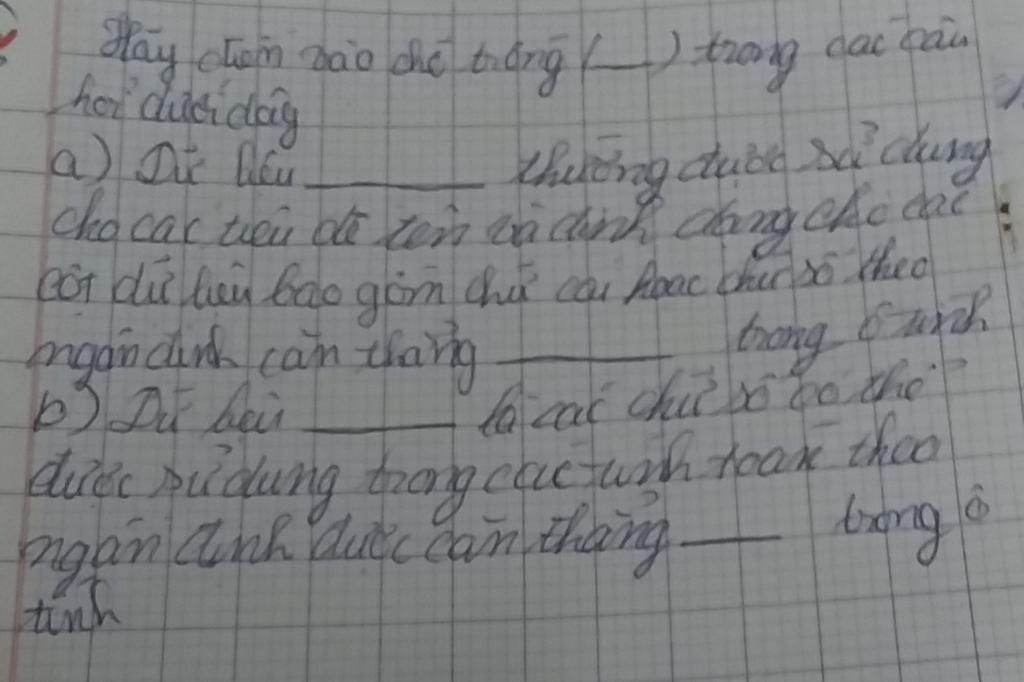 Hãy điền vào chỗ trống (__) trong các câu
hỏi dưới đây
a) Dữ liệu ________ thường được sử dụng
cho các tiêu đề tên và định dạng cho các
cột dữ liệu bao gồm chữ cái hoặc chữ số theo
ngầm định căn thẳng ________ trong ô tính
b) Dữ liệu ________ là các chữ số có thể
được sử dụng trong các tính toán theo
ngầm định được căn thẳng ____ trong ô
tính